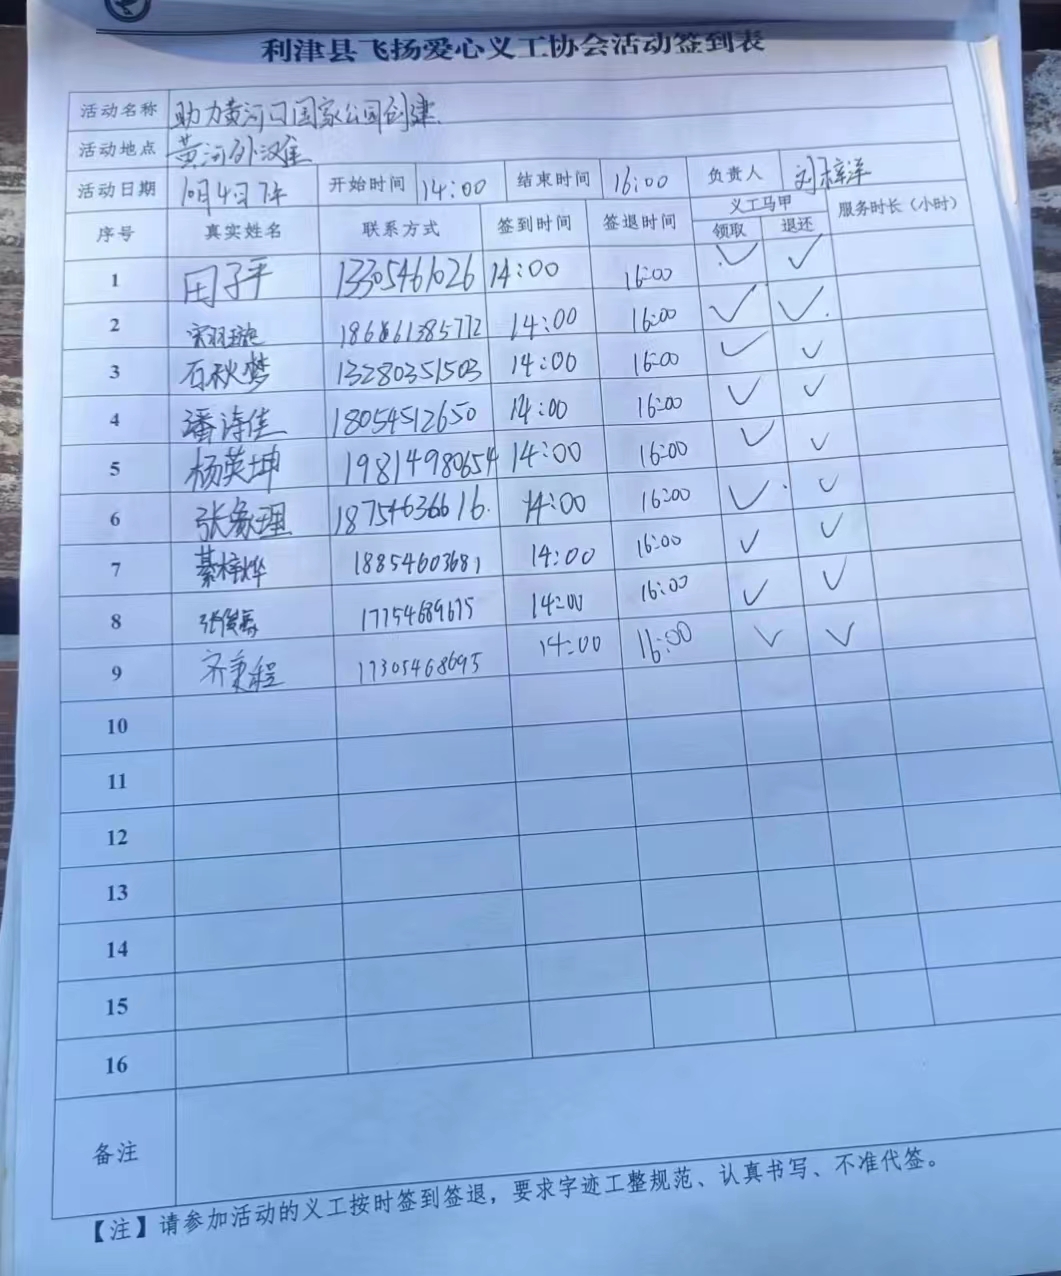 利津县飞扬爱心义工协会活动签到表
活动名称 助力黄河口国家公园创建
活动地点 黄河外滩
活动日期 10月4日 开始时间 14:00 结束时间 16:00 负责人 刘梓洋
序号 真实姓名 联系方式 签到时间 签退时间 义工马甲 服务时长（小时）
领取 退还
1 田子平 13305461026 14:00 16:00 ✓ ✓
2 14:00 16:00 ✓ ✓
3 石秋梦 13280351503 14:00 16:00 ✓ ✓
4 潘诗佳 18054512650 14:00 16:00 ✓ ✓
5 杨英坤 19814980654 14:00 16:00 ✓ ✓
6 张家理 18754636616 14:00 16:00 ✓ ✓
7 綦梓烨 18854603681 14:00 16:00 ✓ ✓
8 17754689675 14:00 16:00 ✓ ✓
9 齐秉程 17305468695 14:00 16:00 ✓ ✓
10
11
12
13
14
15
16
备注
【注】请参加活动的义工按时签到签退，要求字迹工整规范、认真书写、不准代签。